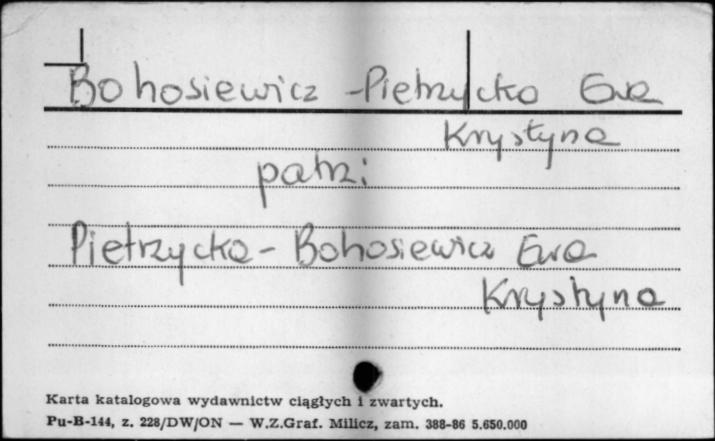 Bohosiewicz - Pietrzycka Ewa
Krystyna
patrz:
Pietrzycka - Bohosiewicz Ewa
Krystyna
Karta katalogowa wydawnictw ciągłych i zwartych.
Pu-B-144, z. 228/DW/ON — W.Z.Graf. Milicz, zam. 388-86 5.650.000